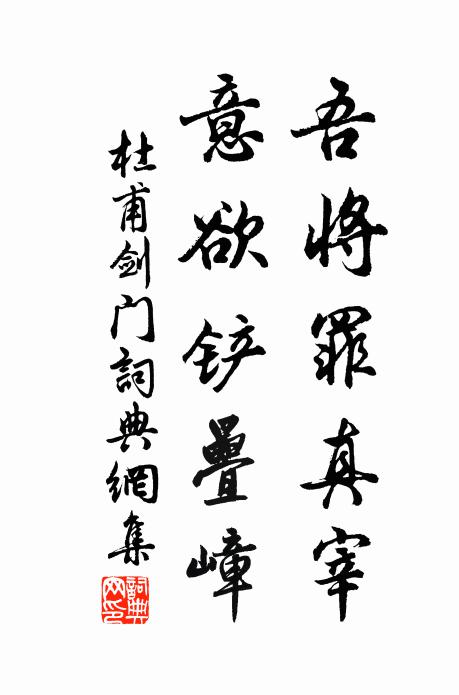 吾將罪真宰
意欲铲疊嶂
杜甫剑门詞典網集
詞典网印